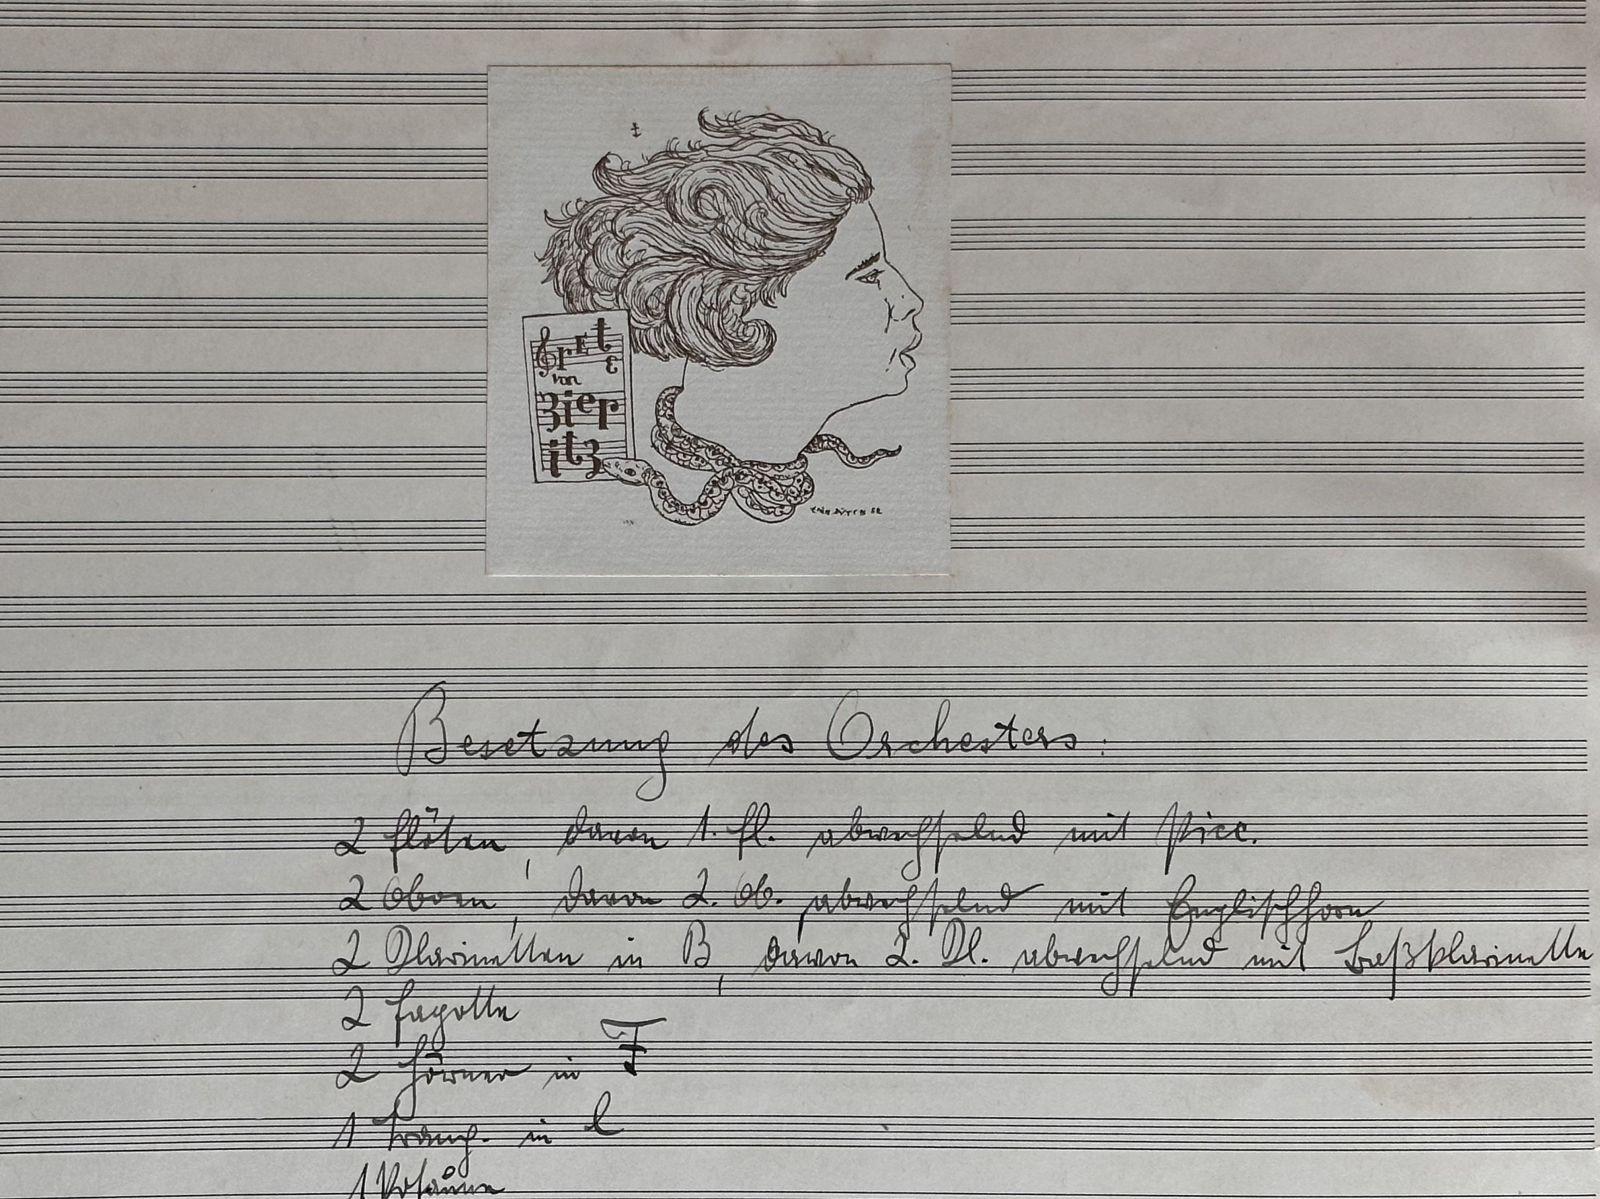 Gret
E
von
Zier
itz
Besetzung des Orchesters:
2 Flöten, davon 1. Fl. abwechselnd mit Picc.
2 Oboen, davon 2. Ob. abwechselnd mit Englischhorn
2 Klarinetten in B, davon 2. Kl. abwechselnd mit Baßklarinette
2 Fagotte
2 Hörner in F
1 Tromp. in C
1 Posaune